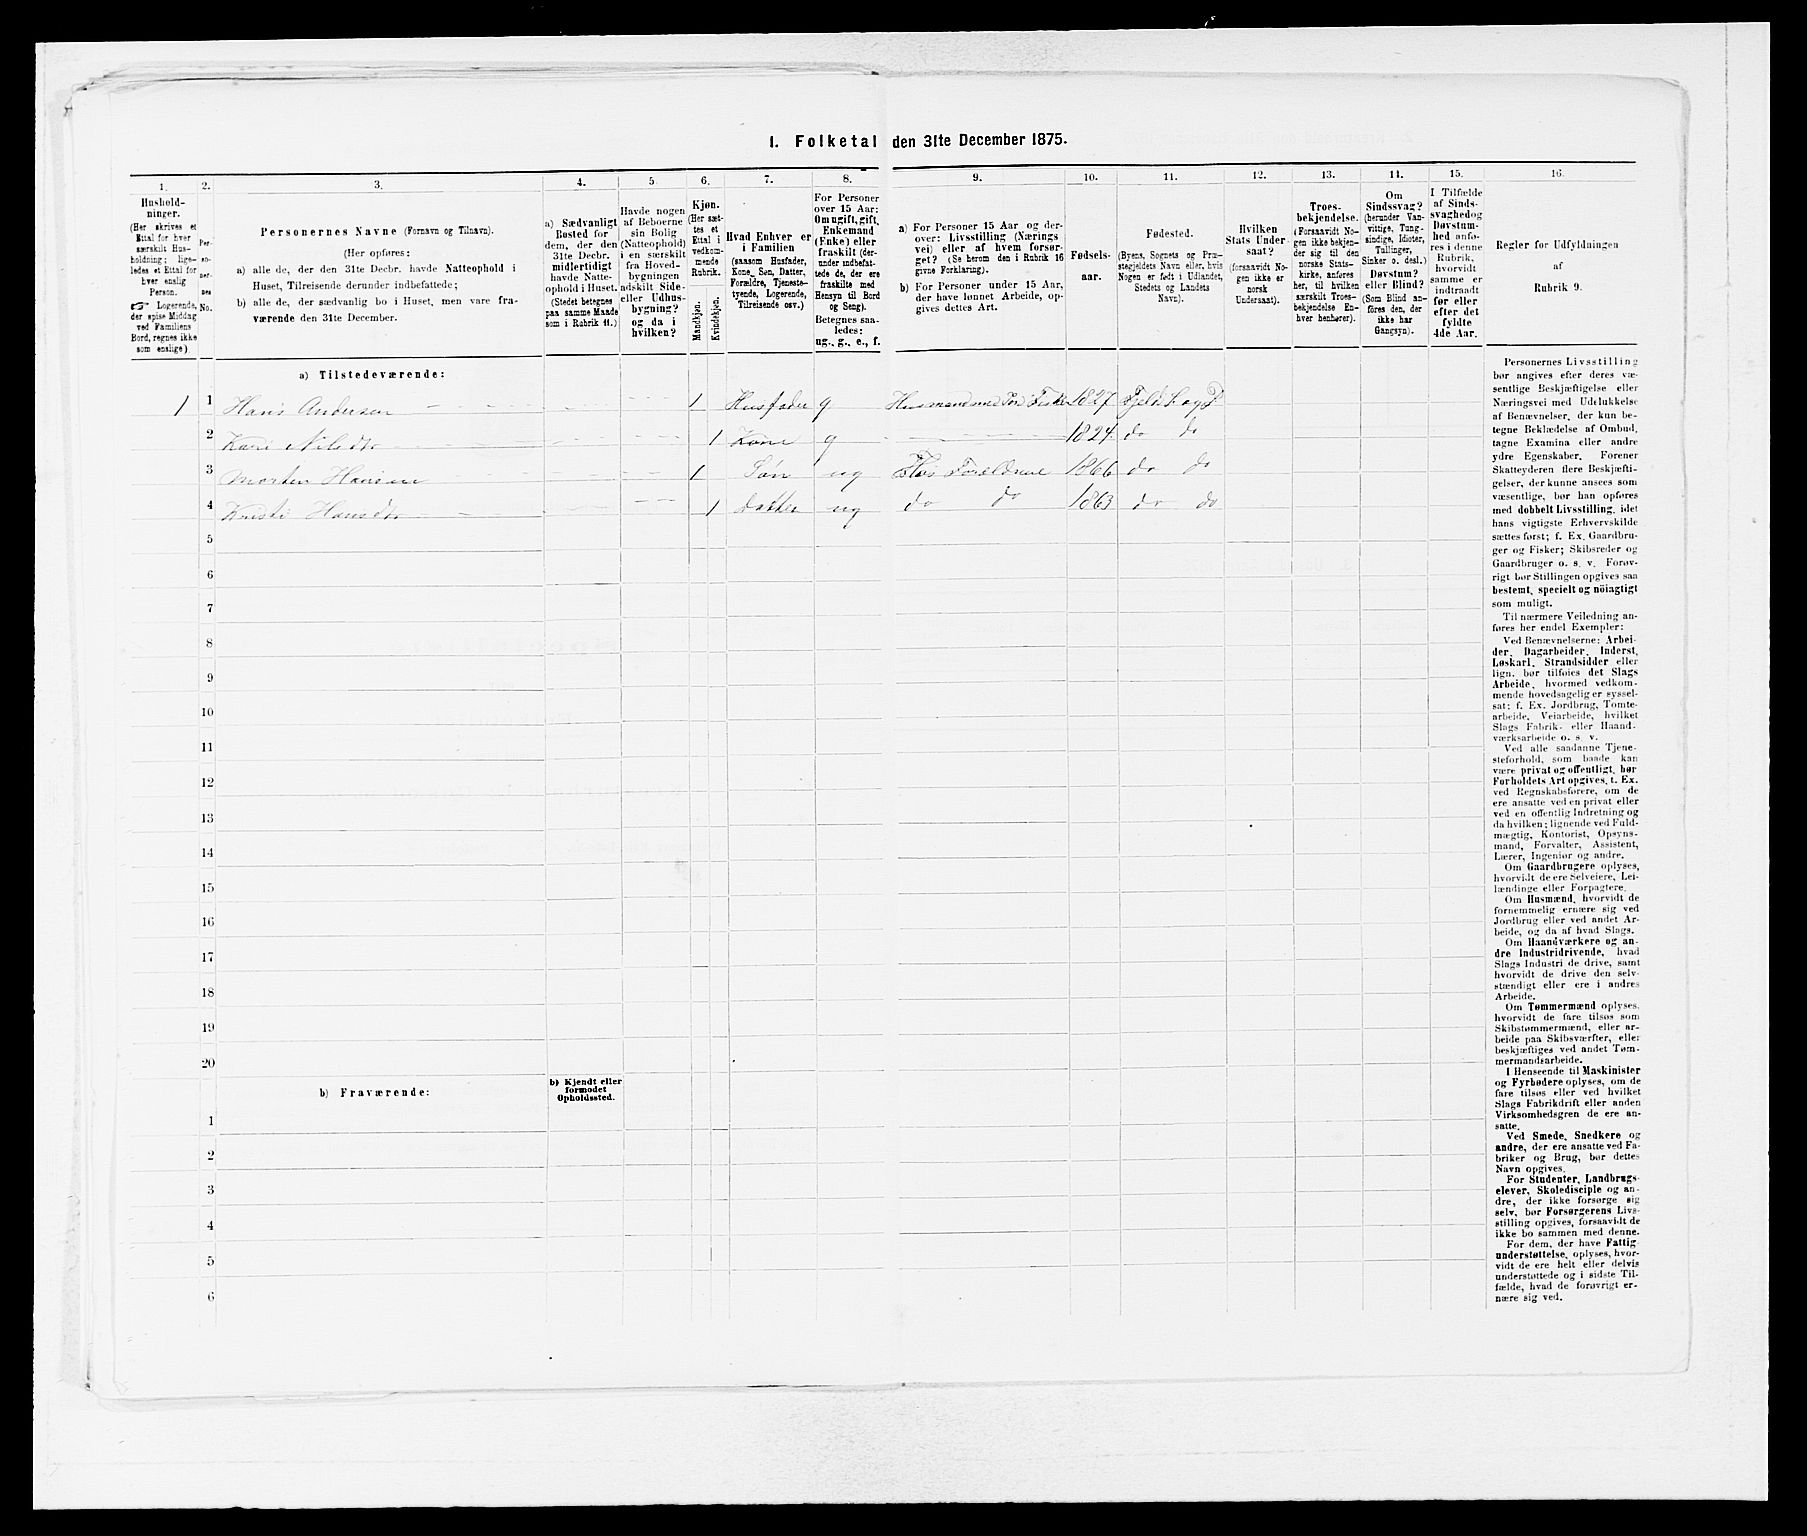 I. Folketal den 31te December 1875.
1.
2.
3.
4.
5.
6.
7.
8.
9.
10.
11.
12.
13.
14.
15.
16.
Hushold-
ninger.
(Her skrives et
Ettal for hver
særskilt Hus-
holdning; lige-
ledes et Ettal for
hver enslig
Person.
☞ Logerende,
der spise Middag
ved Familiens
Bord, regnes ikke
som enslige)
Per-
so-
ner-
nes
No.
Personernes Navne (Fornavn og Tilnavn).
(Her opføres:
a) alle de, der den 31te Decbr. havde Natteophold i
Huset, Tilreisende derunder indbefattede;
b) alle de, der sædvanlig bo i Huset, men vare fra-
værende den 31te December.
a) Sædvanligt
Bosted for
dem, der den
31te Decbr.
midlertidigt
havde Natte-
ophold i Huset.
(Stedet betegnes
paa samme Maade
som i Rubrik 11.)
Havde nogen
af Beboerne
sin Bolig
(Natteophold)
i en særskilt
fra Hoved-
bygningen
adskilt Side-
eller Udhus-
bygning?
og da i
hvilken?
Kjøn.
(Her sæt-
tes et
Ettal i
vedkom-
mende
Rubrik.
Mandkjøn.
Kvindekjøn.
Hvad Enhver er
i Familien
(saasom Husfader,
Kone, Søn, Datter,
Forældre, Tjeneste-
tyende, Logerende,
Tilreisende osv.)
For Personer
over 15 Aar:
Om ugift, gift,
Enkemand
(Enke) eller
fraskilt (der-
under indbefat-
tede de, der ere
fraskilte med
Hensyn til Bord
og Seng).
Betegnes saa-
ledes:
ug., g., e., f.
a) For Personer 15 Aar og der-
over: Livsstilling (Nærings
vei) eller af hvem forsør-
get? (Se herom den i Rubrik 16
givne Forklaring).
b) For Personer under 15 Aar,
der have lønnet Arbeide, op-
gives dettes Art.
Fødsels-
aar.
Fødested.
(Byens, Sognets og Præ-
stegjeldets Navn eller, hvis
Nogen er født i Udlandet,
Stedets og Landets
Navn).
Hvilken
Stats Under-
saat?
(forsaavidt No-
gen ikke er
norsk
Undersaat).
Troes-
bekjendelse.
(Forsaavidt No-
gen ikke bekjen-
der sig til den
norske Stats-
kirke, anføres
her, til hvilken
særskilt Troes-
bekjendelse En-
hver henhører).
Om
Sindssvag?
(herunder Van-
vittige, Tung-
sindige, Idioter,
Tullinger,
Sinker o. desl.)
Døvstum?
eller Blind?
(Som Blind an-
føres den, der
ikke har
Gangsyn).
I Tilfælde
af Sinds-
svaghed og
Døvstum-
hed anfø-
res i denne
Rubrik,
hvorvidt
samme er
indtraadt
før eller
efter det
fyldte
4de Aar.
Regler for Udfyldningen
af
Rubrik 9.
a) Tilstedeværende:
1 1 Hans Andersen 1 Husfader g Husmand med Jord Fisker 1827 Fjeld S og P
2 Kari Nilsdtr 1 Kone g 1824 do do
3 Morten Hansen 1 Søn ug Hos Forældrene 1866 do do
4 Kristi Hansdtr 1 Datter ug do do 1863 do do
5
6
7
8
9
10
11
12
13
14
15
16
17
18
19
20
b) Fraværende:
b) Kjendt eller
formodet
Opholdssted.
1
2
3
4
5
6
Personernes Livsstilling
bør angives efter deres væ-
sentlige Beskjæftigelse eller
Næringsvei med Udelukkelse
af Benævnelser, der kun be-
tegne Beklædelse af Ombud,
tagne Examina eller andre
ydre Egenskaber. Forener
Skatteyderen flere Beskjæfti-
gelser, der kunne ansees som
væsentlige, bør han opføres
med dobbelt Livsstilling, idet
hans vigtigste Erhvervskilde
sættes først; f. Ex. Gaardbru-
ger og Fisker; Skibsreder og
Gaardbruger o. s. v. Forøv-
rigt bør Stillingen opgives saa
bestemt, specielt og nöiagtigt
som muligt.
Til nærmere Veiledning an-
føres her endel Exempler:
Ved Benævnelserne: Arbei-
der, Dagarbeider, Inderst,
Løskarl, Strandsidder eller
lign. bør tilføies det Slags
Arbeide, hvormed vedkom-
mende hovedsagelig er syssel-
sat; f. Ex. Jordbrug, Tomte-
arbeide, Veiarbeide, hvilket
Slags Fabrik- eller Haand-
værksarbeide o. s. v.
Ved alle saadanne Tjene-
steforhold, som baade kan
være privat og offentligt, bør
Forholdets Art opgives, t. Ex.
ved Regnskabsførere, om de
ere ansatte ved en privat eller
ved en offentlig Indretning og
da hvilken; lignende ved Fuld-
mægtig, Kontorist, Opsyns-
mand, Forvalter, Assistent,
Lærer, Ingeniør og andre.
Om Gaardbrugere oplyses,
hvorvidt de ere Selveiere, Lei-
lændinge eller Forpagtere.
Om Husmænd, hvorvidt de
fornemmelig ernære sig ved
Jordbrug eller ved andet Ar-
beide, og da af hvad Slags.
Om Haandværkere og an-
dre Industridrivende, hvad
Slags Industri de drive, samt
hvorvidt de drive den selv-
stændigt eller ere i andres
Arbeide.
Om Tømmermænd oplyses,
hvorvidt de fare tilsøs som
Skibstømmermænd, eller ar-
beide paa Skibsværfter, eller
beskjæftiges ved andet Tøm-
mermandsarbeide.
I Henseende til Maskinister
og Fyrbødere oplyses, om de
fare tilsøs eller ved hvilket
Slags Fabrikdrift eller anden
Virksomhedsgren de ere an-
satte.
Ved Smede, Snedkere og
andre, der ere ansatte ved Fa-
briker og Brug, bør dettes
Navn opgives.
For Studenter, Landbrugs-
elever, Skoledisciple og an-
dre, der ikke forsørge sig
selv, bør Forsørgerens Livs-
stilling opgives, forsaavidt de
ikke bo sammen med denne.
For dem, der have Fattig-
understøttelse, oplyses, hvor-
vidt de ere helt eller delvis
understøttede og i sidste Til-
fælde, hvad de forøvrigt er-
nære sig ved.